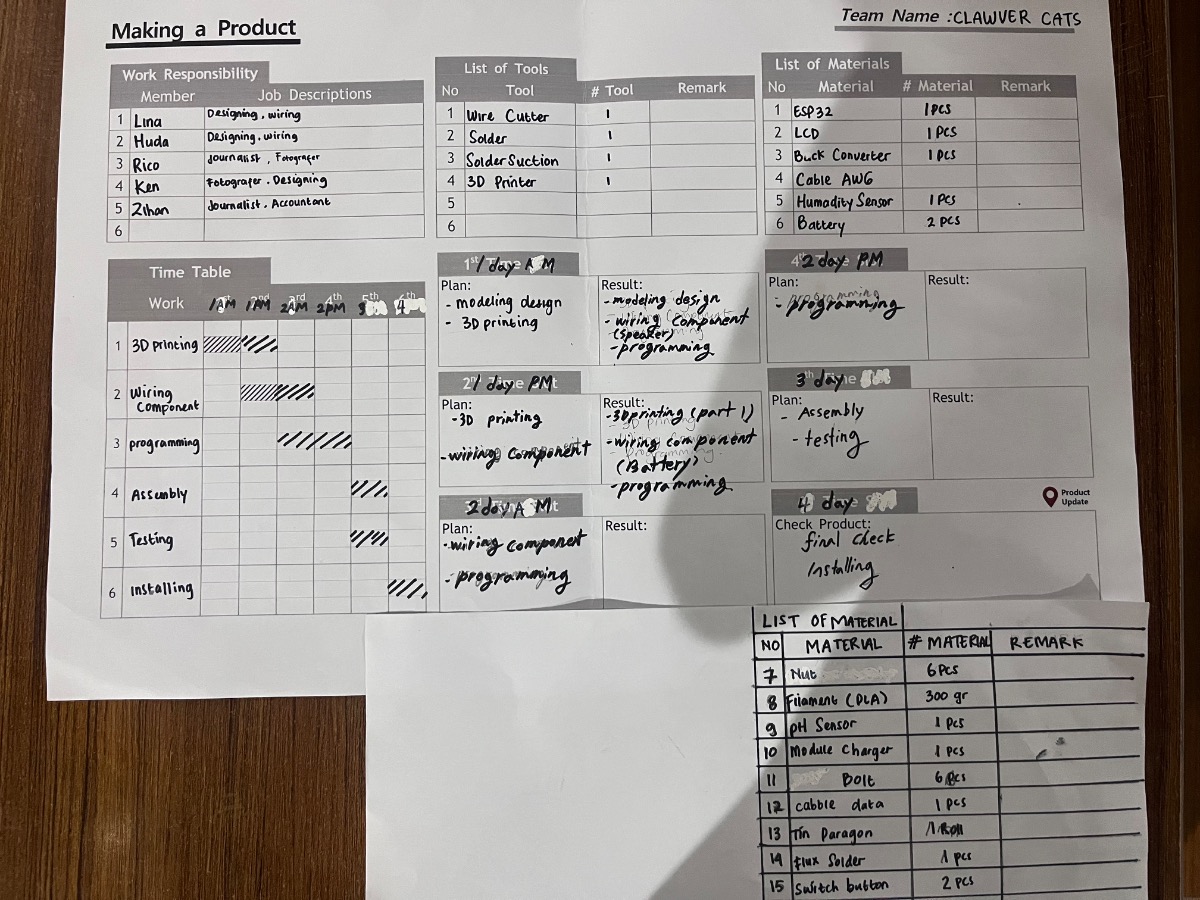 Making a Product
Team Name :CLAWVER CATS
Work Responsibility
Member Job Descriptions
1 Lina Designing, wiring
2 Huda Designing, wiring
3 Rico Journalist, Fotografer
4 Ken Fotografer, Designing
5 Zihan Journalist, Accountant
6
List of Tools
No Tool # Tool Remark
1 Wire Cutter 1
2 Solder 1
3 Solder Suction 1
4 3D Printer 1
5
6
List of Materials
No Material # Material Remark
1 ESP32 1 PCS
2 LCD 1 PCS
3 Buck Converter 1 PCS
4 Cable AWG
5 Humadity Sensor 1 PCS
6 Battery 2 PCS
Time Table
Work 1AM 1AM 2AM 2PM 3 4
1 3D printing
2 Wiring
Component
3 programming
4 Assembly
5 Testing
6 installing
1 day AM
Plan:
- modeling design
- 3D printing
Result:
- modeling design
- wiring component
(speaker)
- programming
1 day PM
Plan:
-3D printing
-wiring component
Result:
-3D printing (part 1)
-wiring component
(Battery)
- programming
2 day AM
Plan:
-wiring component
- programming
Result:
2 day PM
Plan:
- programming
Result:
3 day
Plan:
- Assembly
- testing
Result:
4 day
Product
Update
Check Product:
final check
Installing
LIST OF MATERIAL
NO MATERIAL # MATERIAL REMARK
7 Nut 6 Pcs
8 Filament (DLA) 300 gr
9 pH Sensor 1 Pcs
10 Module Charger 1 Pcs
11 Bolt 6 Pcs
12 cabble data 1 Pcs
13 Tin Paragon 1 Roll
14 flux Solder 1 pcs
15 Switch button 2 PCS